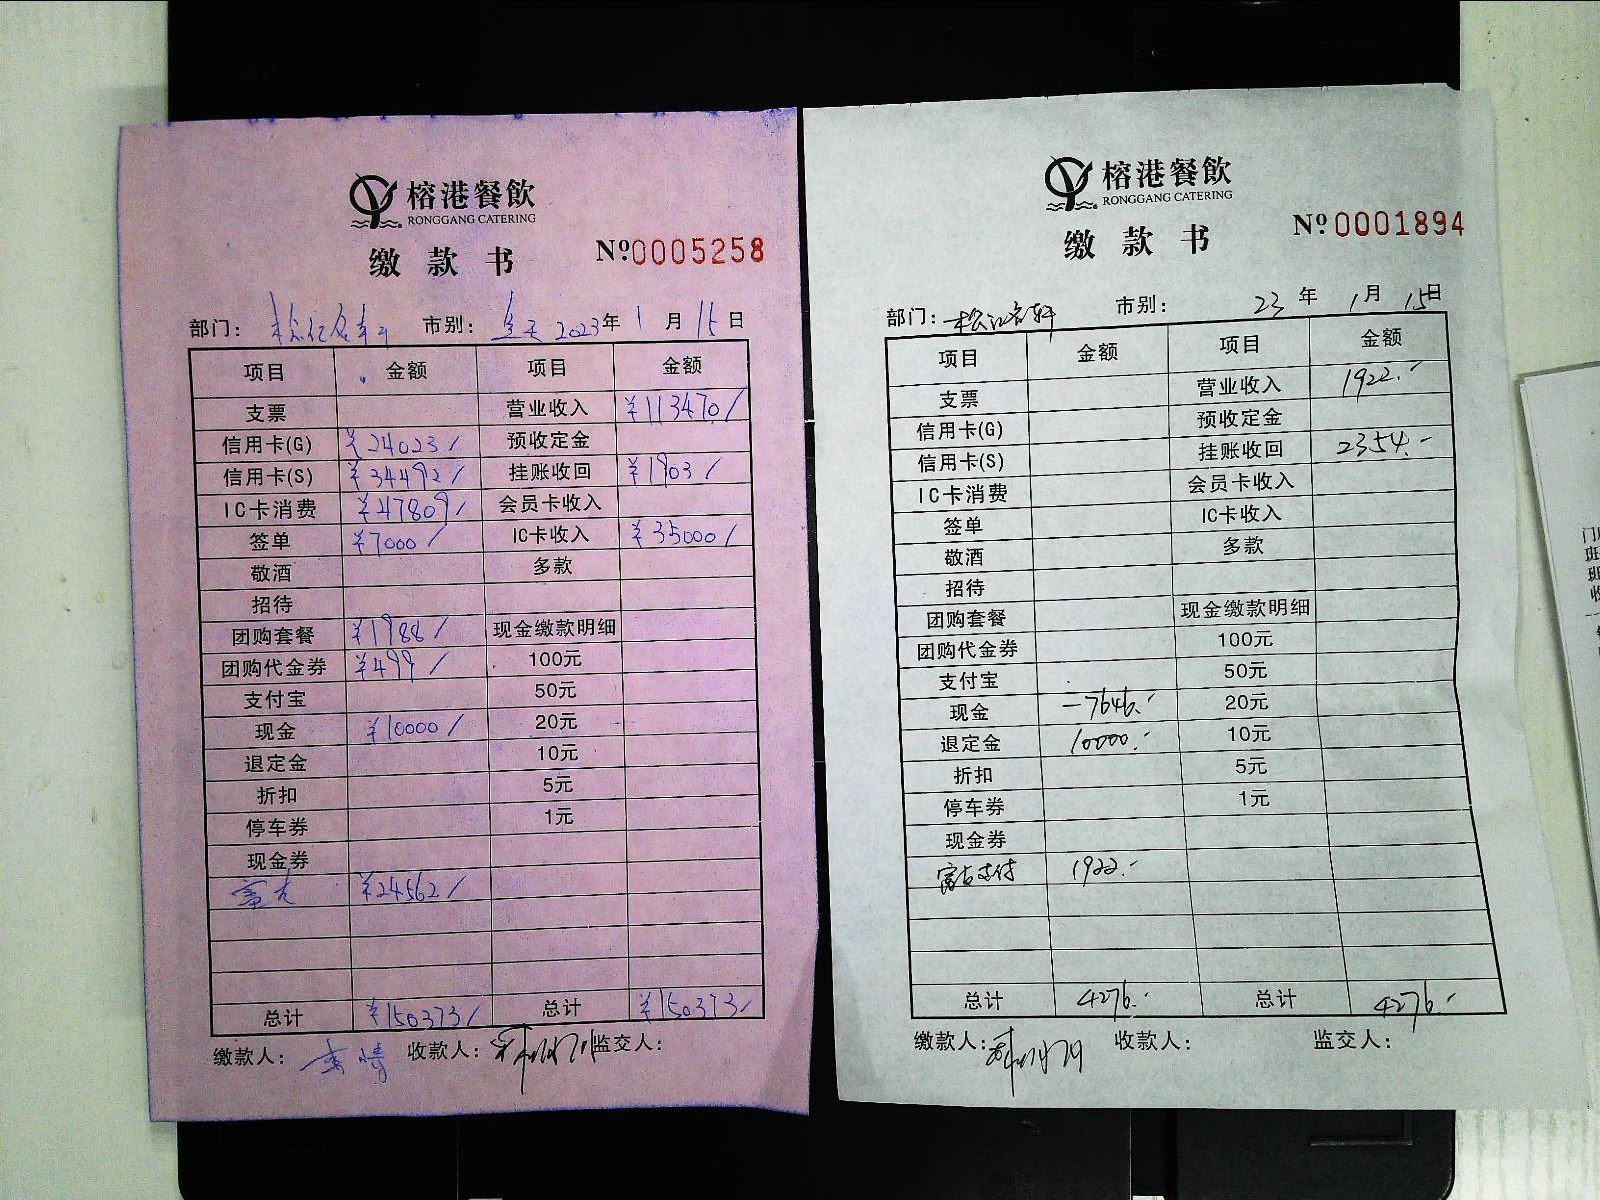 榕港餐飲
RONGGANG CATERING
缴款书 №0005258
部门: 市别: 2023年 1月 15日
项目 金额 项目 金额
支票 营业收入 ¥113470/
信用卡(G) ¥24023/ 预收定金
信用卡(S) ¥34492/ 挂账收回 ¥1903/
IC卡消费 ¥47809/ 会员卡收入
签单 ¥7000/ IC卡收入 ¥35000/
敬酒 多款
招待
团购套餐 ¥1988/ 现金缴款明细
团购代金券 ¥499/ 100元
支付宝 50元
现金 ¥10000/ 20元
退定金 10元
折扣 5元
停车券 1元
现金券
¥24562/
总计 ¥150373/ 总计 ¥150373/
缴款人: 收款人: 监交人:
榕港餐飲
RONGGANG CATERING
缴款书 №0001894
部门: 松江名轩 市别: 23年 1月 15日
项目 金额 项目 金额
支票 营业收入 1922.-
信用卡(G) 预收定金
信用卡(S) 挂账收回 2354.-
IC卡消费 会员卡收入
签单 IC卡收入
敬酒 多款
招待
团购套餐 现金缴款明细
团购代金券 100元
支付宝 50元
现金 -7646.- 20元
退定金 10000.- 10元
折扣 5元
停车券 1元
现金券
富友支付 1922.-
总计 4276.- 总计 4276.-
缴款人: 收款人: 监交人: